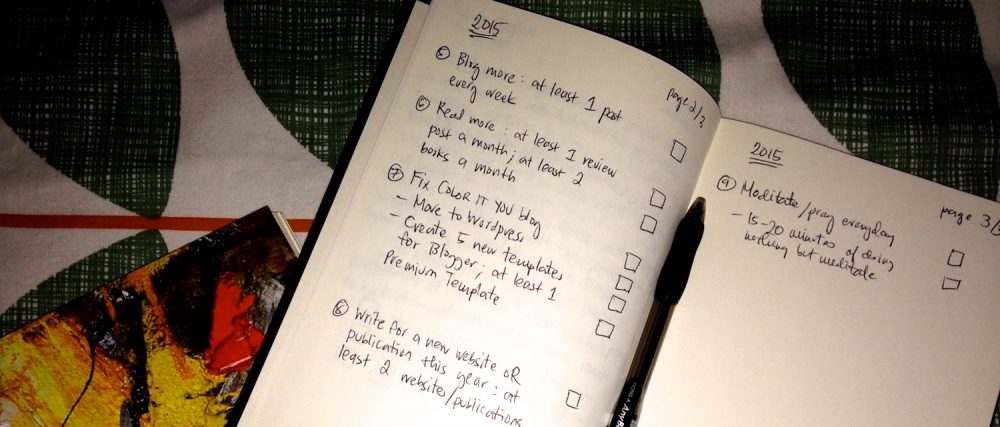 2015
page 2/3
⑤ Blog more : at least 1 post
every week
⑥ Read more : at least 1 review
post a month; at least 2
books a month
⑦ Fix COLOR IT YOU blog
- Move to Wordpress
- Create 5 new templates
for Blogger; at least 1
Premium Template
⑧ Write for a new website OR
publication this year : at
least 2 websites/publications
2015
page 3/3
⑨ Meditate/pray everyday
- 15-20 minutes of doing
nothing but meditate